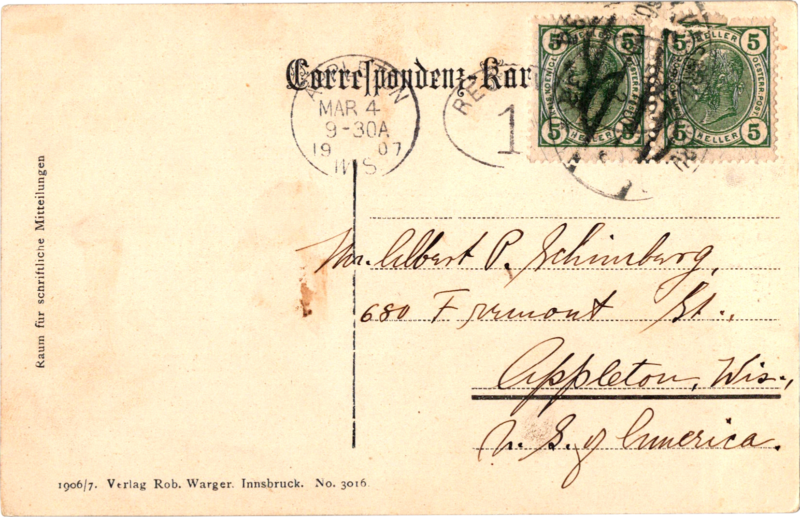 Correspondenz-Kar
APPLETON
MAR 4
9-30A
1907
WIS
RE
1
5 HELLER 5
5 HELLER 5
5 HELLER 5
OESTERR. POST
5 HELLER 5
Mr. Albert P. Schimberg,
680 Fremont St.,
Appleton, Wis.,
U. S. of America.
Raum für schriftliche Mitteilungen
1906/7. Verlag Rob. Warger. Innsbruck. No. 3016